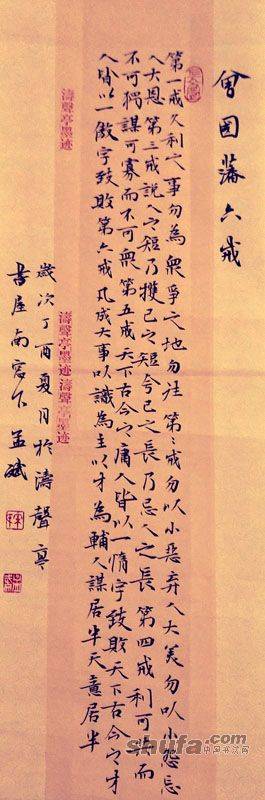 曾國藩六戒
第一戒久利之事勿為眾爭之地勿往第二戒勿以小惡弃人大美勿以小怨忘
人大恩第三戒説人之短乃護己之短夸己之長乃忌人之長第四戒利可共而
不可獨謀可寡而不可眾第五戒天下古今之庸人皆以一惰字致敗天下古今之才
人皆以一傲字致敗第六戒凡成大事以識為主以才為輔人謀居半天意居半
歲次丁酉夏月於濤聲亭
書屋南窓下孟斌
濤聲亭墨迹
濤聲亭墨迹濤聲亭墨迹
shufa.com
中国书法网